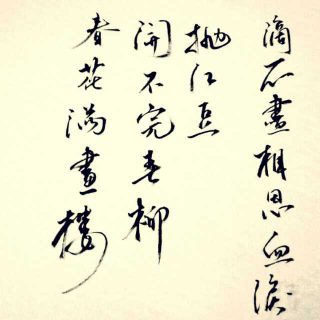 滴不盡相思血淚
抛红豆
開不完春柳
春花滿畫樓